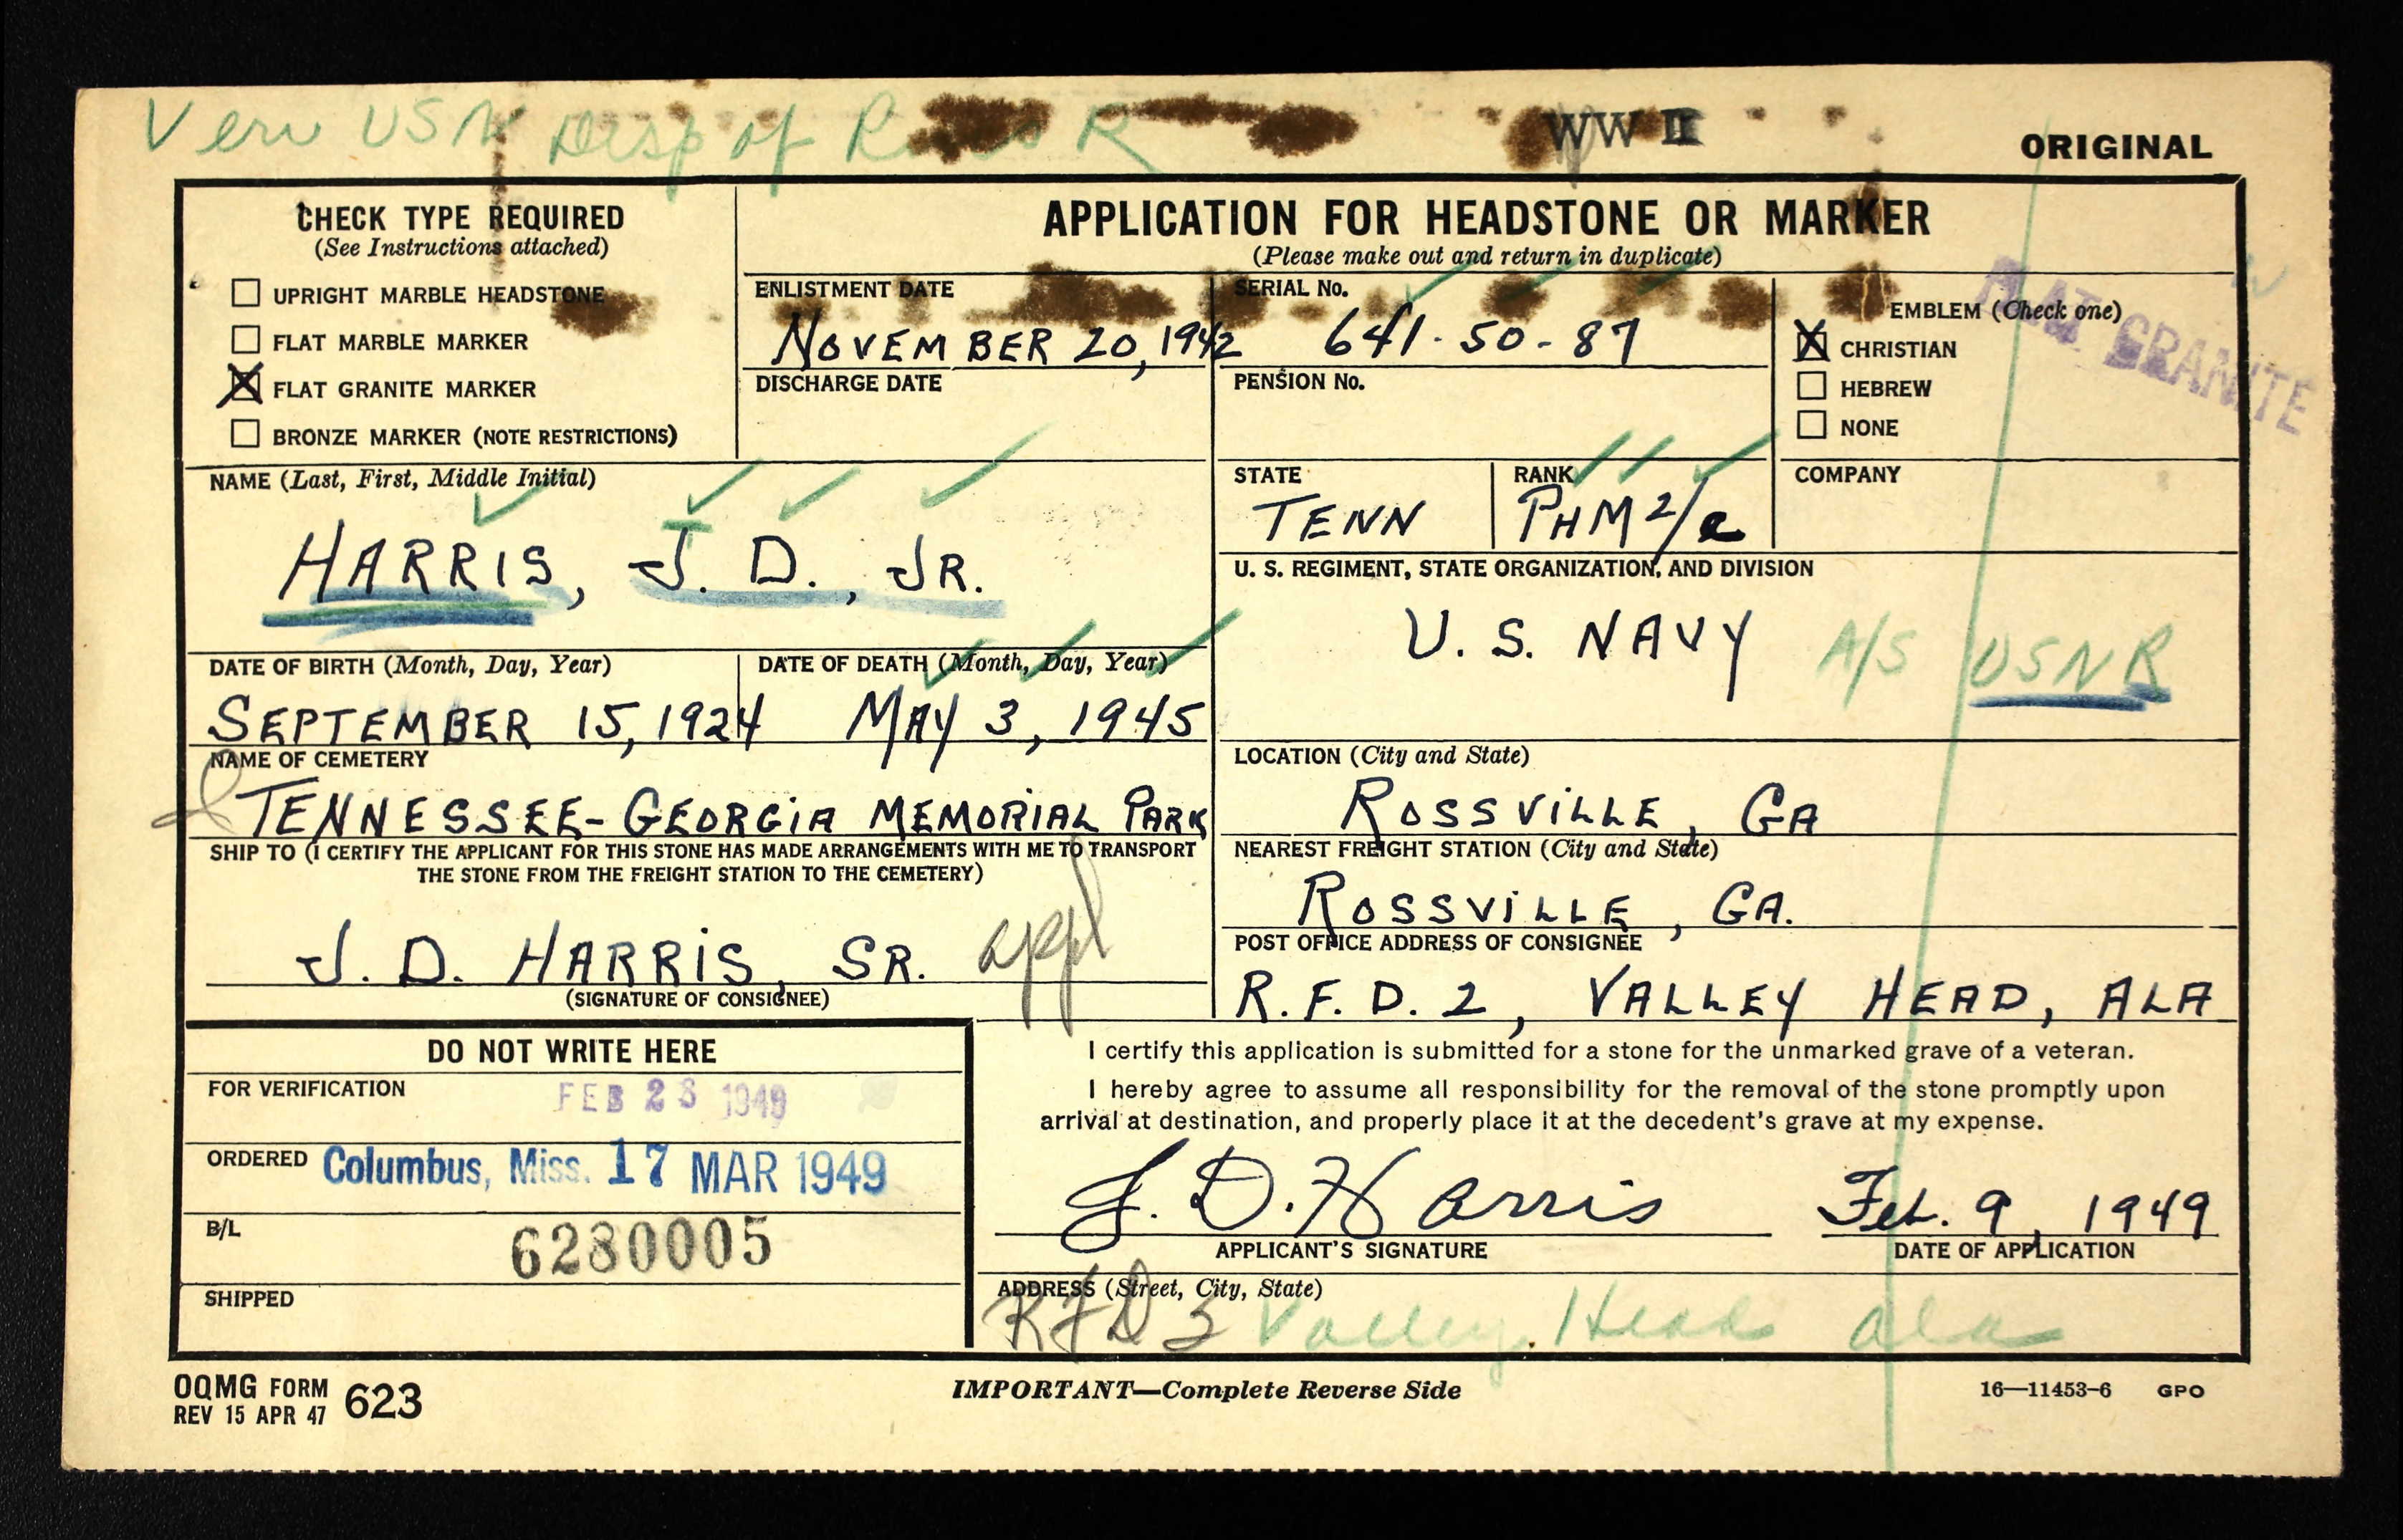 Veri USN Disp of R
WW II
ORIGINAL
CHECK TYPE REQUIRED
(See Instructions attached)
UPRIGHT MARBLE HEADSTONE
FLAT MARBLE MARKER
FLAT GRANITE MARKER
BRONZE MARKER (NOTE RESTRICTIONS)
APPLICATION FOR HEADSTONE OR MARKER
(Please make out and return in duplicate)
ENLISTMENT DATE
NOVEMBER 20, 1942
SERIAL No.
641-50-87
DISCHARGE DATE
PENSION No.
EMBLEM (Check one)
CHRISTIAN
HEBREW
NONE
FLAT GRANITE
NAME (Last, First, Middle Initial)
HARRIS, J. D., JR.
STATE
TENN
RANK
PHM 2/c
COMPANY
U. S. REGIMENT, STATE ORGANIZATION, AND DIVISION
U. S. NAVY A/S USNR
DATE OF BIRTH (Month, Day, Year)
SEPTEMBER 15, 1924
DATE OF DEATH (Month, Day, Year)
MAY 3, 1945
NAME OF CEMETERY
TENNESSEE-GEORGIA MEMORIAL PARK
LOCATION (City and State)
ROSSVILLE, GA
SHIP TO (I CERTIFY THE APPLICANT FOR THIS STONE HAS MADE ARRANGEMENTS WITH ME TO TRANSPORT
THE STONE FROM THE FREIGHT STATION TO THE CEMETERY)
J. D. HARRIS, SR. appl
(SIGNATURE OF CONSIGNEE)
NEAREST FREIGHT STATION (City and State)
ROSSVILLE, GA.
POST OFFICE ADDRESS OF CONSIGNEE
R.F.D. 2, VALLEY HEAD, ALA
DO NOT WRITE HERE
FOR VERIFICATION FEB 23 1949
ORDERED Columbus, Miss. 17 MAR 1949
B/L 6280005
SHIPPED
I certify this application is submitted for a stone for the unmarked grave of a veteran.
I hereby agree to assume all responsibility for the removal of the stone promptly upon
arrival at destination, and properly place it at the decedent's grave at my expense.
J. D. Harris
APPLICANT'S SIGNATURE
Feb. 9, 1949
DATE OF APPLICATION
ADDRESS (Street, City, State)
RFD 2 Valley Head Ala
OQMG FORM 623
REV 15 APR 47
IMPORTANT—Complete Reverse Side
16—11453-6 GPO